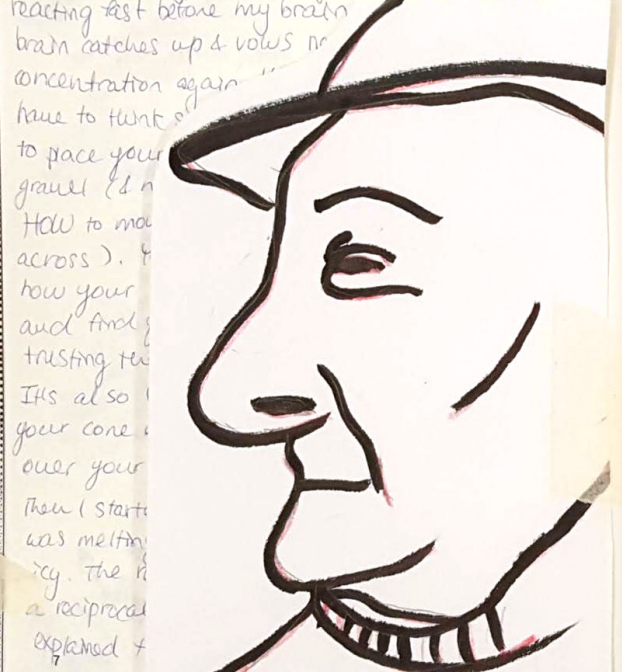 reacting fast before my brain
brain catches up & vows
concentration again
have to think
to place your
gravel (&
HOW to
across).
how your
and find
trusting
It's also
your cone
over your
Then I
was
icy. The
a reciprocal
explained
7